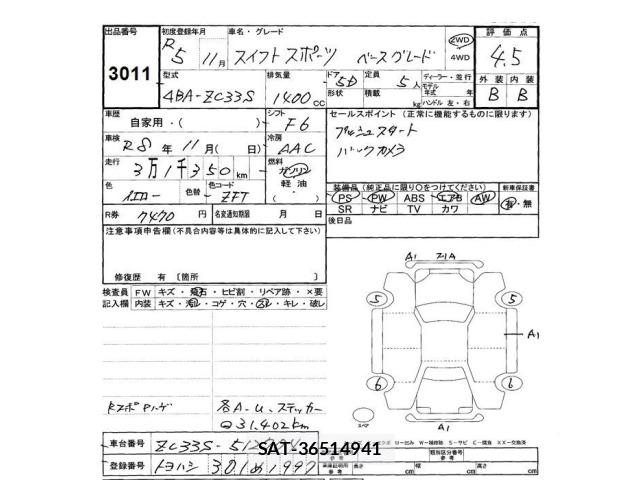 出品番号
3011
初度登録年月
R5 11月
車名・グレード
スイフトスポーツ ベースグレード
2WD
4WD
評価点
4.5
型式
4BA-ZC33S
排気量
1400 cc
ドア 5D
形状
定員 5人
積載 kg
ディーラー・並行
モデル年式 年式
ハンドル 左・右
外装 内装
B B
車歴
自家用・( )
シフト
F6
セールスポイント (正常に機能するものに限ります)
プッシュスタート
バックカメラ
車検
R8年11月( 日)
冷房
AAC
走行
3万1千350km
燃料
ガソリン
軽油
・( )
色
イエロー
色替
色コード
ZFT
装備品 (純正品に限り○をつけてください)
PS PW ABS エアB AW
SR ナビ TV カワ
新車保証書
有・無
R券 7470 円
名変通知期限 月 日
後日品
注意事項申告欄(不具合内容等は具体的に記入して下さい)
修復歴 有 〔箇所 〕
検査員記入欄
FW キズ・飛石・ヒビ割・リペア跡・×要
内装 キズ・汚レ・コゲ・穴・スレ・キレ・破レ
A1 21A
5 5
A1
6 6
スペア
A1
各A-U、ステッカー
31,402km
車台番号 ZC33S-
登録番号 トヨハシ 301
SAT-36514941
類別区分番号
長さ cm 幅 cm 高さ cm